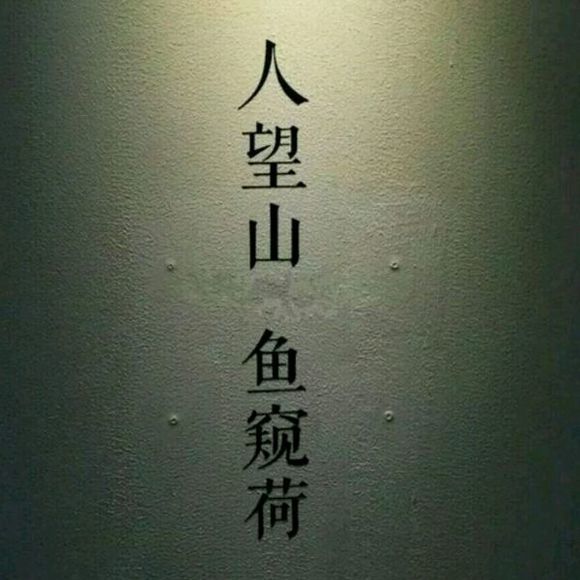 人望山
鱼窥荷